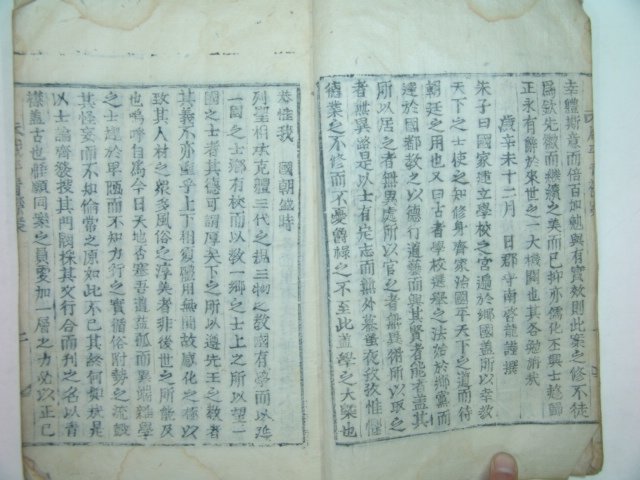 幸體斯意而倍百加勉與有實效則此案之修不徒
爲致先徽而繼續之美而已抑亦儒化丕興士趍歸
正永有辭於來世之一大機關也其各勉旃哉
歲辛未十二月 日郡守南啓龍謹撰
朱子曰國家建立學校之宮遍於郷國盖所以幸教
天下之士使之知修身齊家治國平天下之道而待
朝廷之用也又曰古者學校選擧之法始於郷黨而
達於國都教之以德行道藝而興其賢者能者盖其
所以居之者無異處所以官之者無異術所以取之
者無異路是以士有定志而無外慕蚤夜孜孜惟懼
德業之不修而不憂爵祿之不至此盖學之大槩也
恭惟我 國朝盛時
列聖相承克體三代之親三物之教國有學而以延
一國之士鄕有校而以敎一鄕之士上之所以望一
國之士者其德可謂厚矣下之所以遵先王之敎者
其義不亦重乎上下相愛體用無閒故感化之極以
致其人材之衆多風俗之淳美者非後世之所能及
也嗚呼自爲今日天地否塞吾道益孤而異端雜學
之士埋於卑陋而不知力行之實循俗附勢之流
其怪妄而不知倫常之原如此不已其終何如哉是
以士論齊發搜其門閥採其文行合而刊之名以青
襟盖古也惟願同案之員更加一層之力免以正已